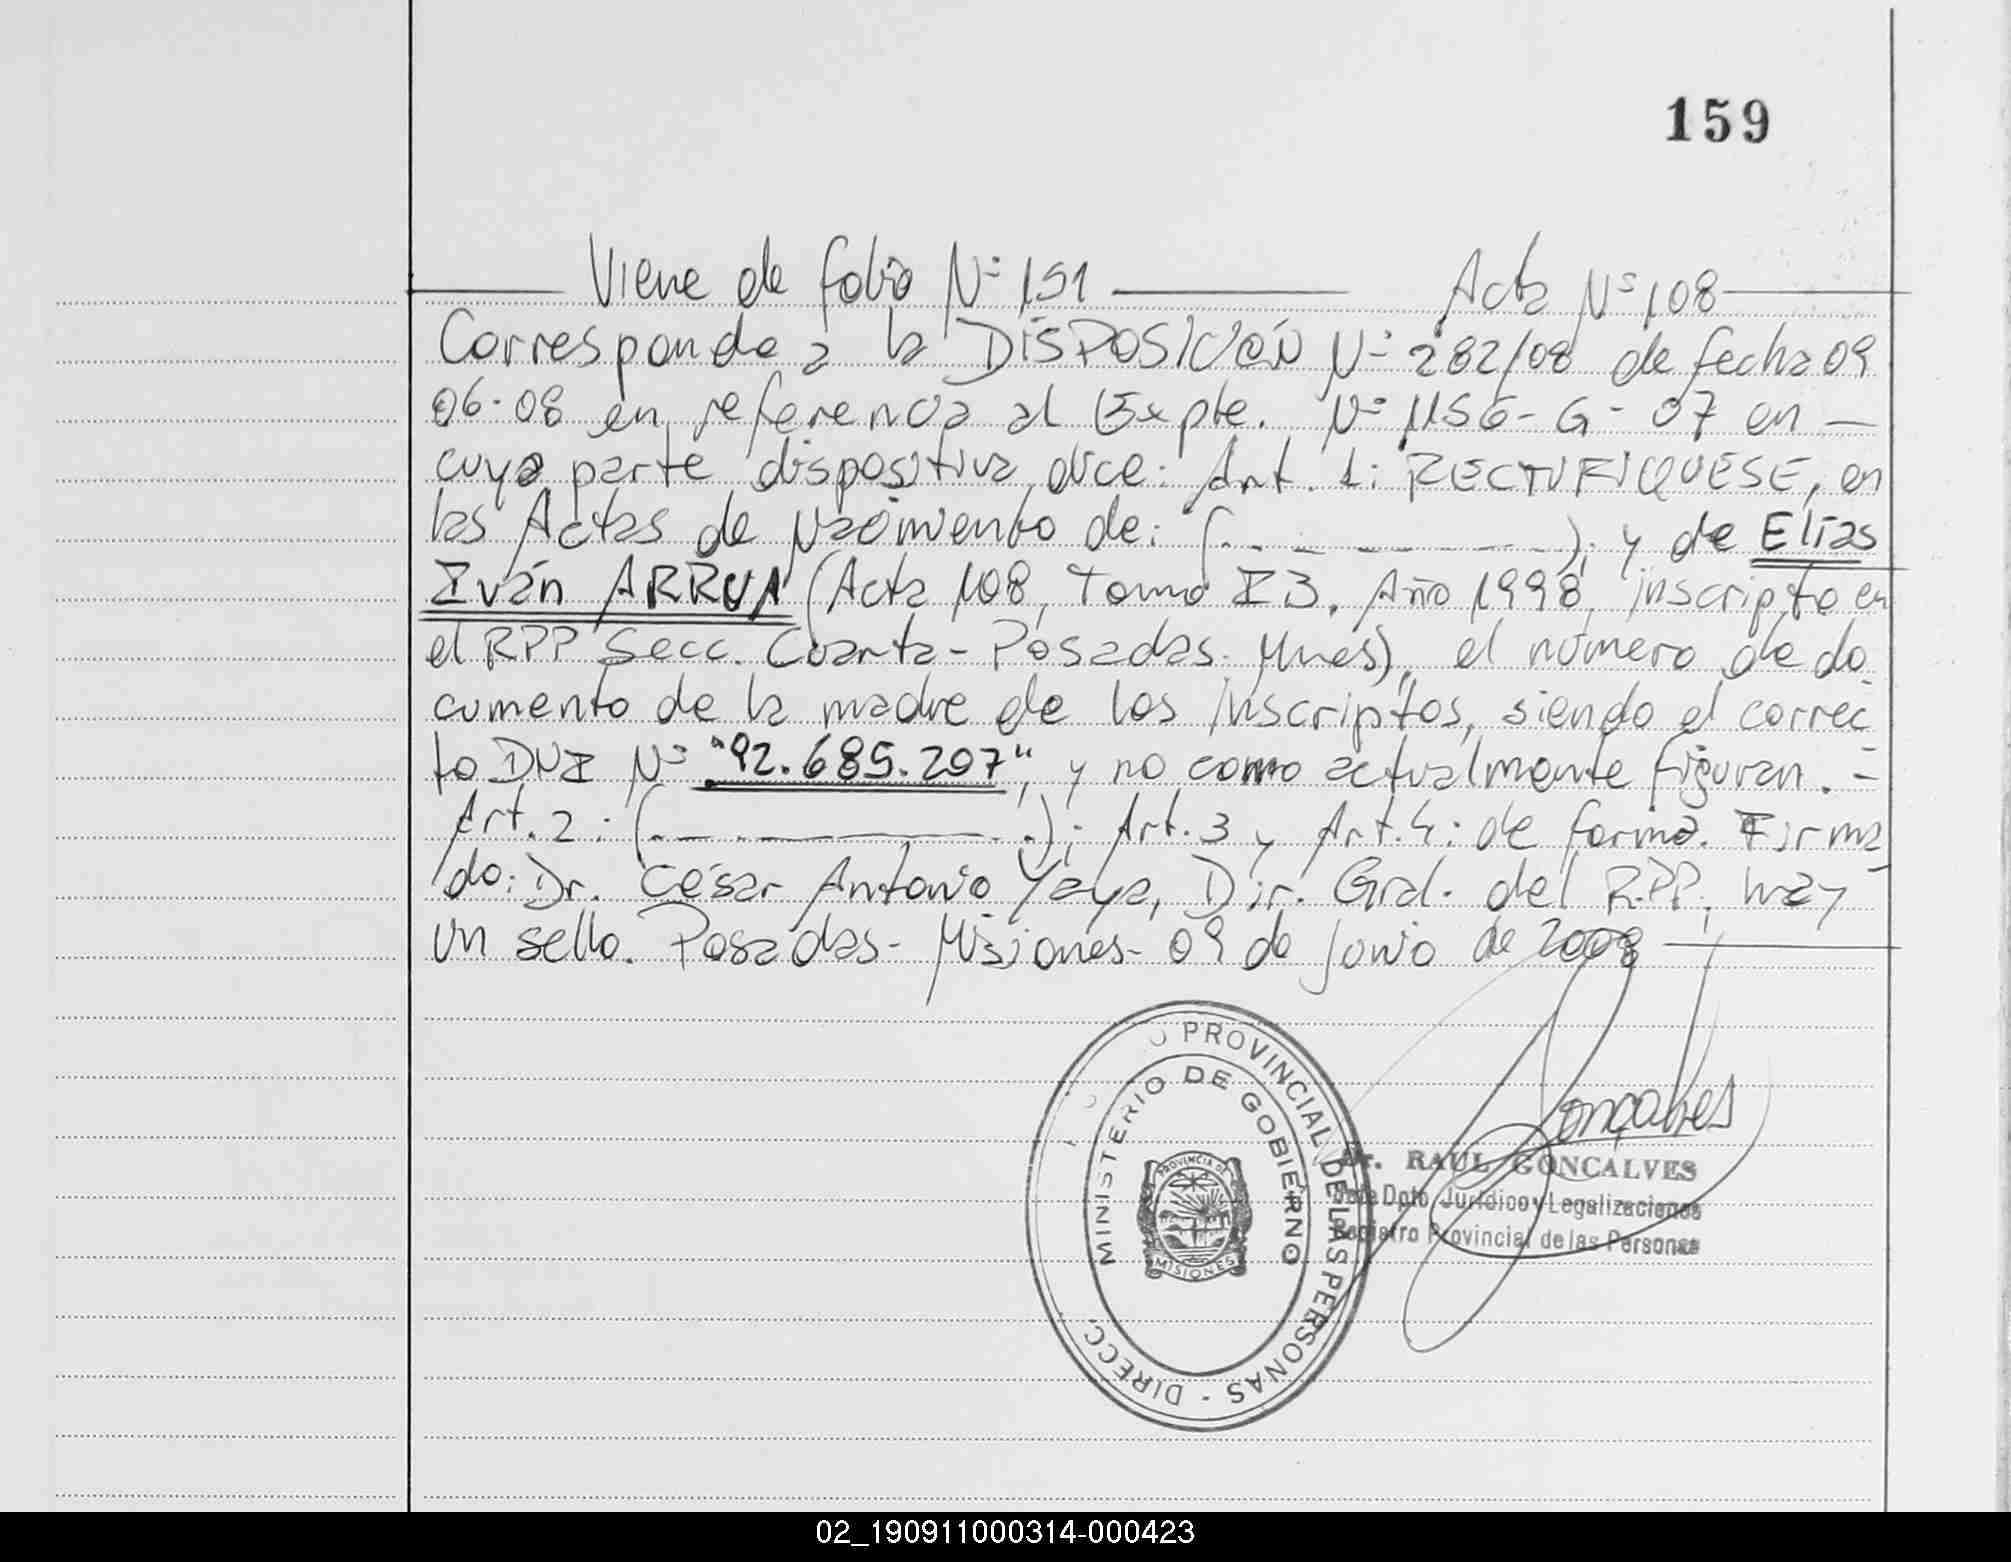 159
Viene de folio Nº 151 Acta Nº 108
Corresponde a la DISPOSICIÓN Nº 282/08 de fecha 09
06-08 en referencia al Expte. Nº 1156-G-07 en
cuya parte dispositiva dice: Art. 1: RECTIFIQUESE, en
las Actas de Nacimiento de: (. - - - - - - -); y de Elías
Iván ARRUA (Acta 108, Tomo I3, Año 1998, inscripto en
el RPP Secc. Cuarta - Posadas. Mnes), el número de do
cumento de la madre de los inscriptos, siendo el correc
to DNI Nº "92.685.207", y no como actualmente figuran. =
Art. 2: (. - - - - .); Art. 3 y Art. 4: de forma. Firma
do: Dr. César Antonio Yaya, Dir. Gral. del R.P.P, hay
un sello. Posadas - Misiones - 09 de junio de 2008
PROVINCIAL DE LAS PERSONAS - DIRECC.
MINISTERIO DE GOBIERNO
PROVINCIA DE
MISIONES
Gonçalves
Dr. RAUL GONCALVES
Jefe Dpto Jurídico y Legalizaciones
Registro Provincial de las Personas
02_190911000314-000423